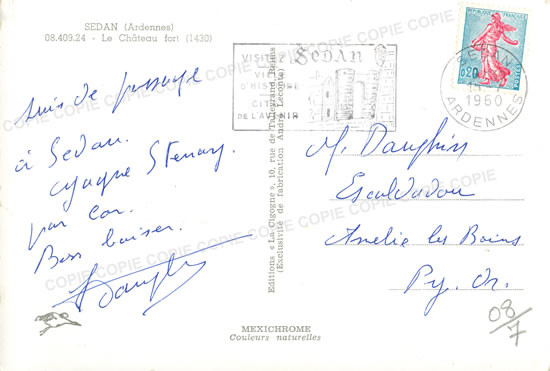 SEDAN (Ardennes)
08.409.24 - Le Château fort (1430)
suis de passage
à Sedan.
Stenay
par car.
Bon baiser.
Dauphin
VISITEZ
VILLE
D'HISTOIRE
CITÉ
DE L'AVENIR
Sedan
REPUBLIQUE FRANÇAISE
0,20
SEDAN
1960
ARDENNES
M. Dauphin
Escaldadou
Amélie les Bains
Py. Or.
Editions « La Cigogne », 10, rue de Talleyrand, Reims
(Exclusivité de fabrication André Leconte)
MEXICHROME
Couleurs naturelles
08/7
COPIE COPIE COPIE COPIE COPIE COPIE